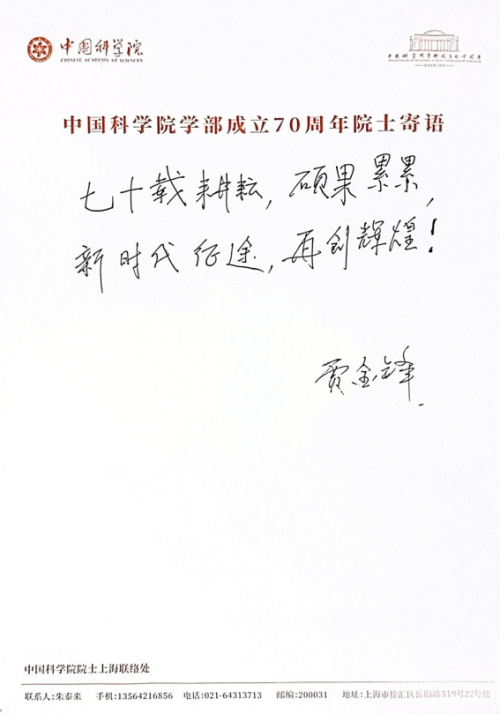 中国科学院
CHINESE ACADEMY OF SCIENCES
中国科学院学部成立70周年院士寄语
七十载耕耘，硕果累累，
新时代征途，再创辉煌！
贾金锋
中国科学院院士上海联络处
联系人:朱泰来 手机:13564216856 电话:021-64313713 邮编:200031 地址:上海市徐汇区岳阳路319号22号楼